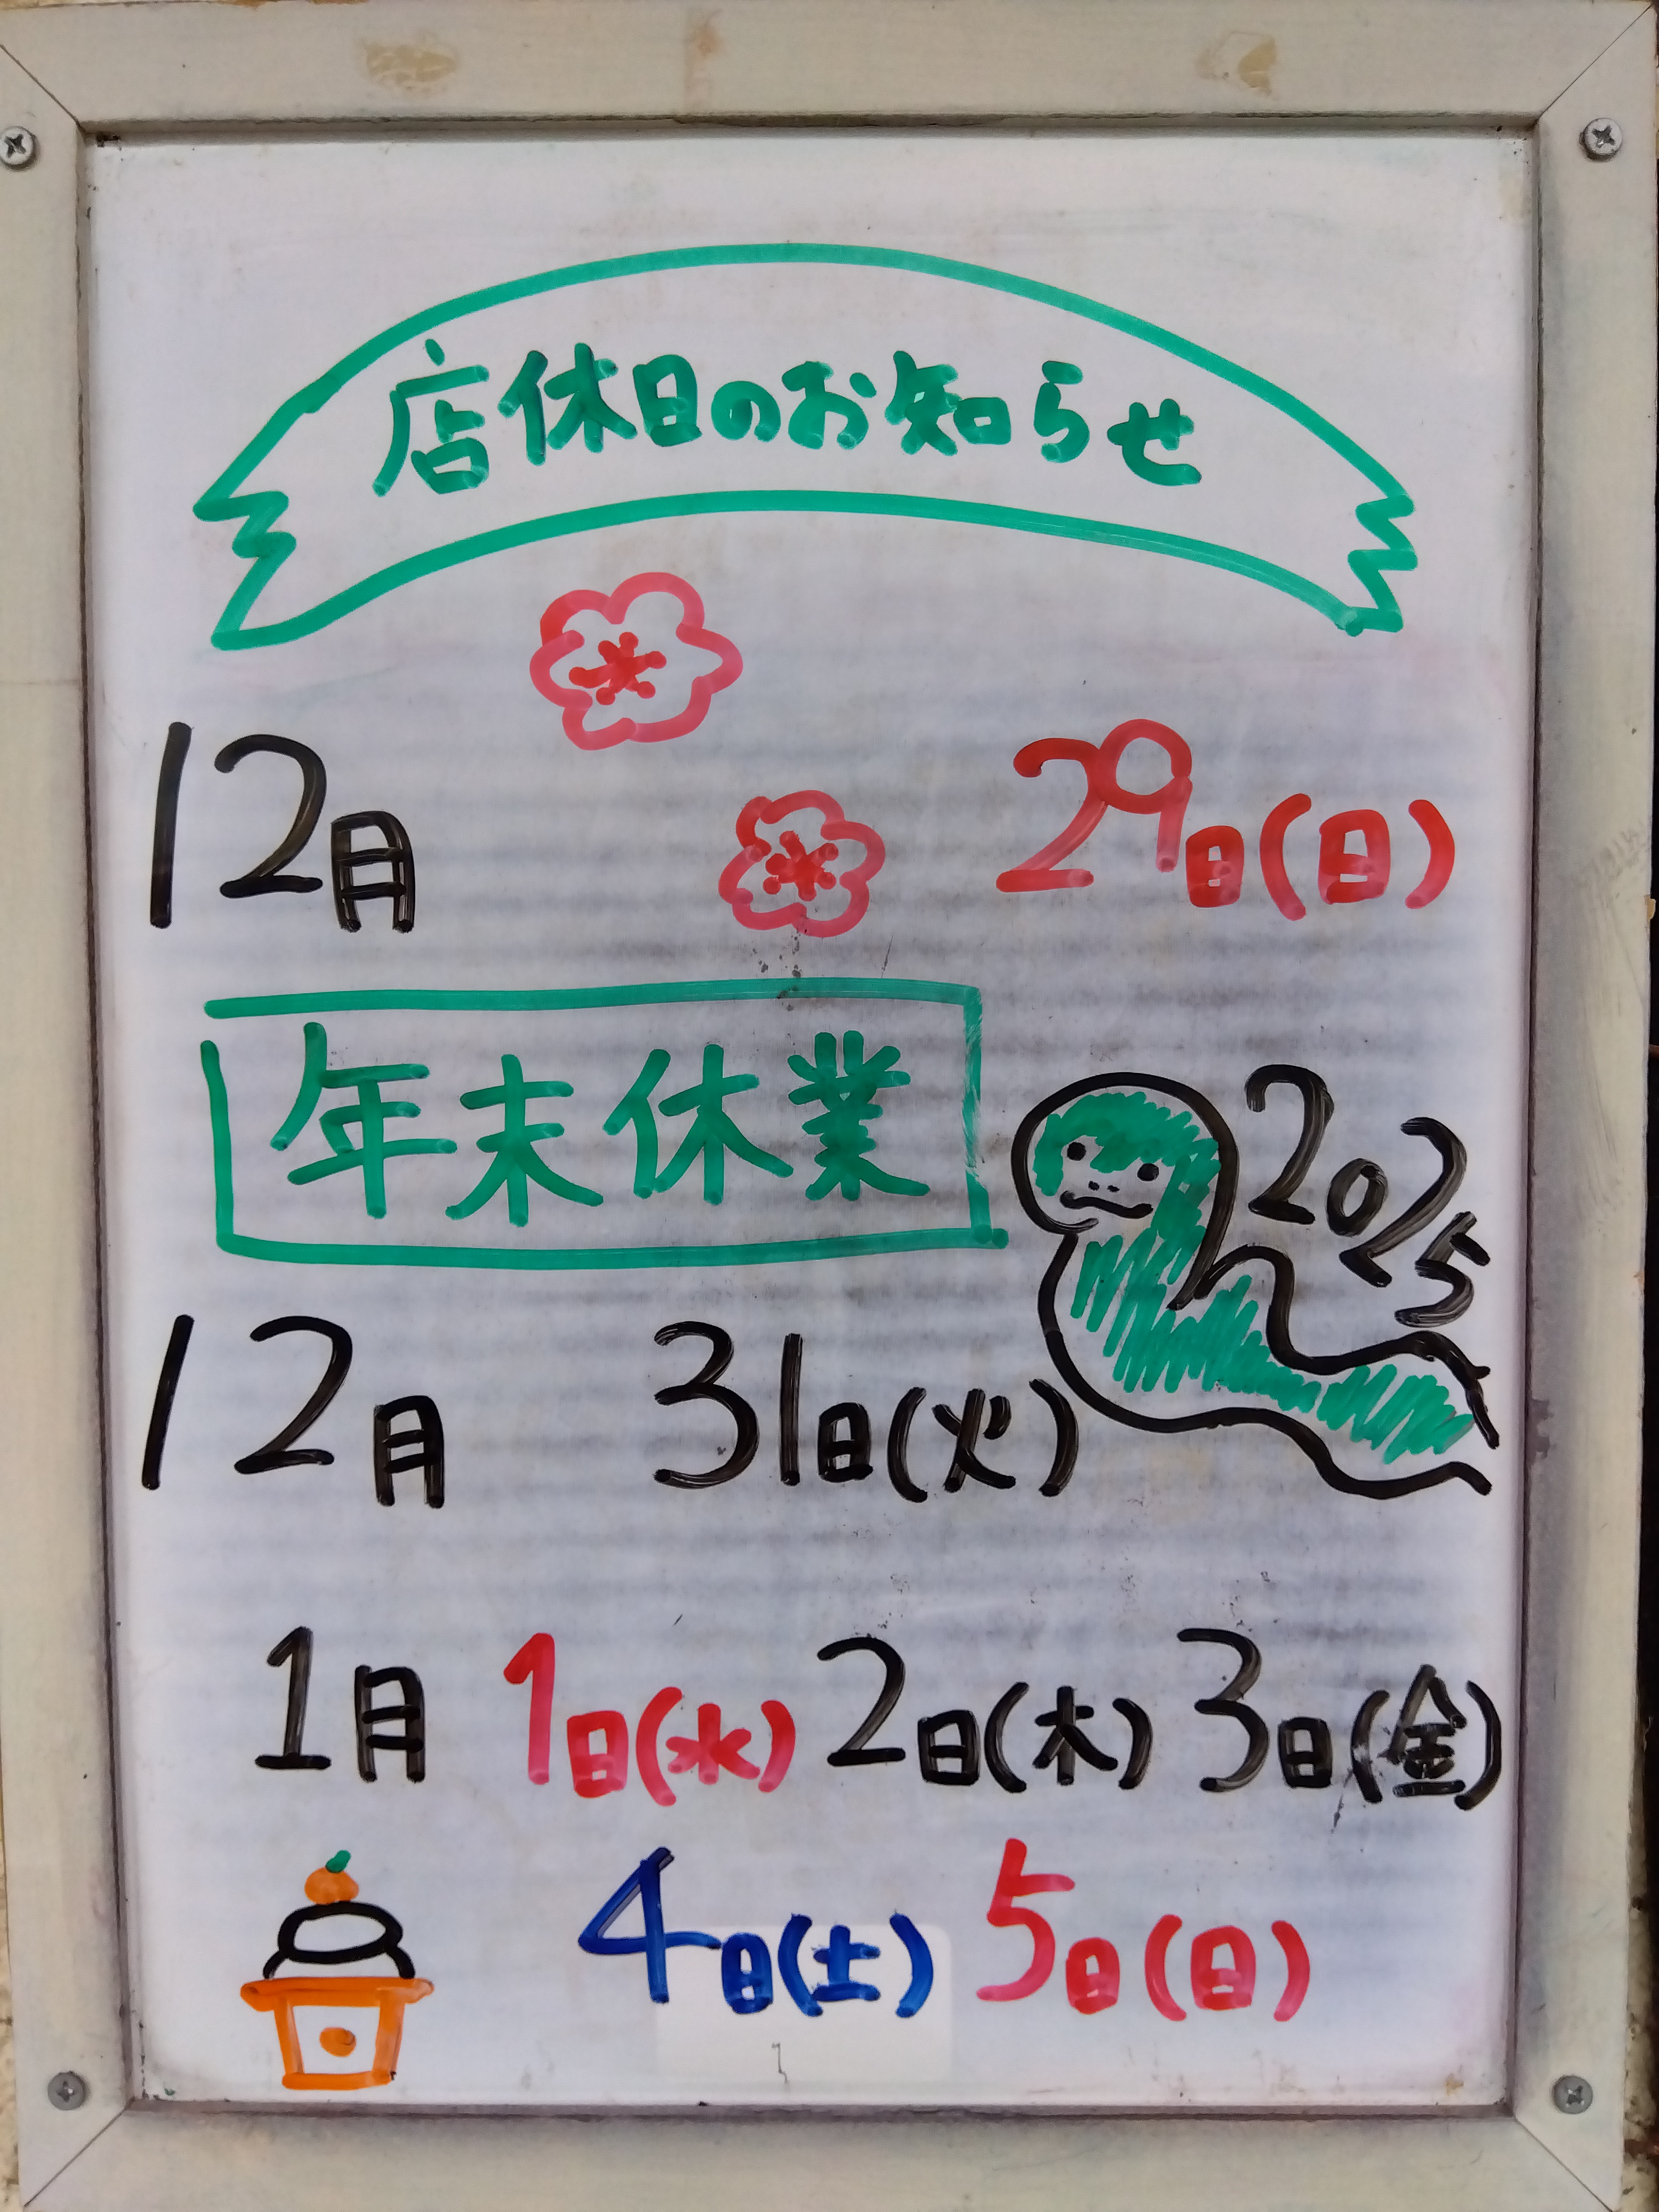 店休日のお知らせ
12月 29日(日)
年末休業
2025
12月 31日(火)
1月 1日(水) 2日(木) 3日(金)
4日(土) 5日(日)